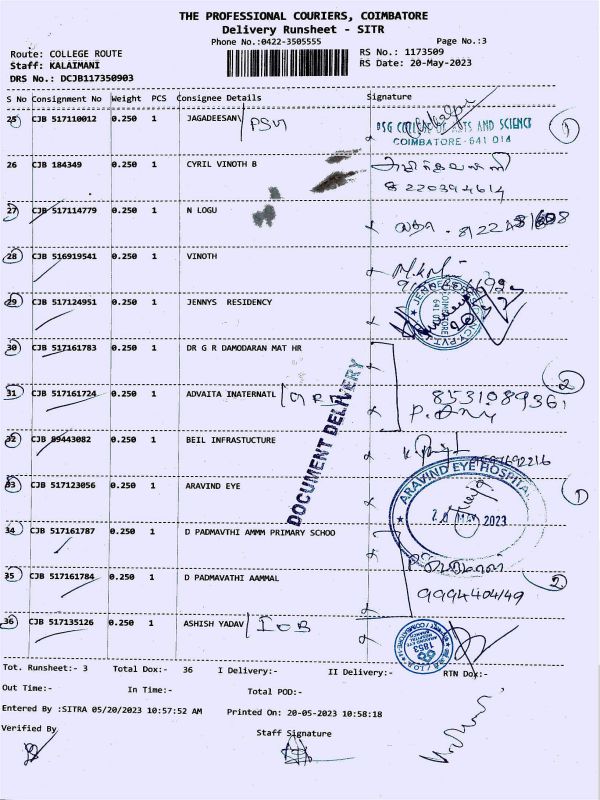 THE PROFESSIONAL COURIERS, COIMBATORE
Delivery Runsheet - SITR
Phone No.:0422-3505555 Page No.:3
Route: COLLEGE ROUTE RS No.: 1173509
Staff: KALAIMANI RS Date: 20-May-2023
DRS No.: DCJB117350903
S No Consignment No Weight PCS Consignee Details Signature
25 CJB 517110012 0.250 1 JAGADEESAN PSG
PSG COLLEGE OF ARTS AND SCIENCE
COIMBATORE - 641 014
1
26 CJB 184349 0.250 1 CYRIL VINOTH B
8220394614
27 CJB 517114779 0.250 1 N LOGU
லதா
28 CJB 516919541 0.250 1 VINOTH
29 CJB 517124951 0.250 1 JENNYS RESIDENCY
COIMBATORE
641 014
30 CJB 517161783 0.250 1 DR G R DAMODARAN MAT HR
DOCUMENT DELIVERY
31 CJB 517161724 0.250 1 ADVAITA INATERNATL GRD
8531089361
2
32 CJB 89443082 0.250 1 BEIL INFRASTUCTURE
33 CJB 517123056 0.250 1 ARAVIND EYE
ARAVIND EYE HOSPITAL
20 MAY 2023
1
34 CJB 517161787 0.250 1 D PADMAVTHI AMMM PRIMARY SCHOO
35 CJB 517161784 0.250 1 D PADMAVATHI AAMMAL
9994404149
2
36 CJB 517135126 0.250 1 ASHISH YADAV IOB
1853
Tot. Runsheet:- 3 Total Dox:- 36 I Delivery:- II Delivery:- RTN Dox:-
Out Time:- In Time:- Total POD:-
Entered By :SITRA 05/20/2023 10:57:52 AM Printed On: 20-05-2023 10:58:18
Verified By Staff Signature